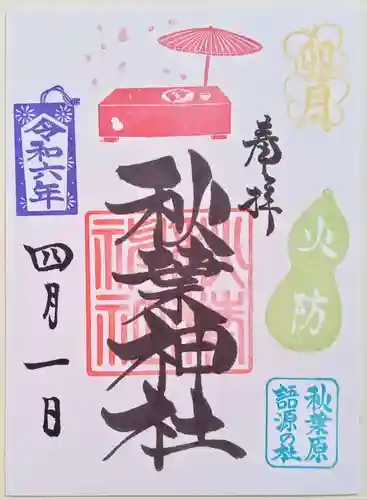 卯月
奉拝
火防
秋葉原
語源の社
秋葉神社
令和六年
四月一日